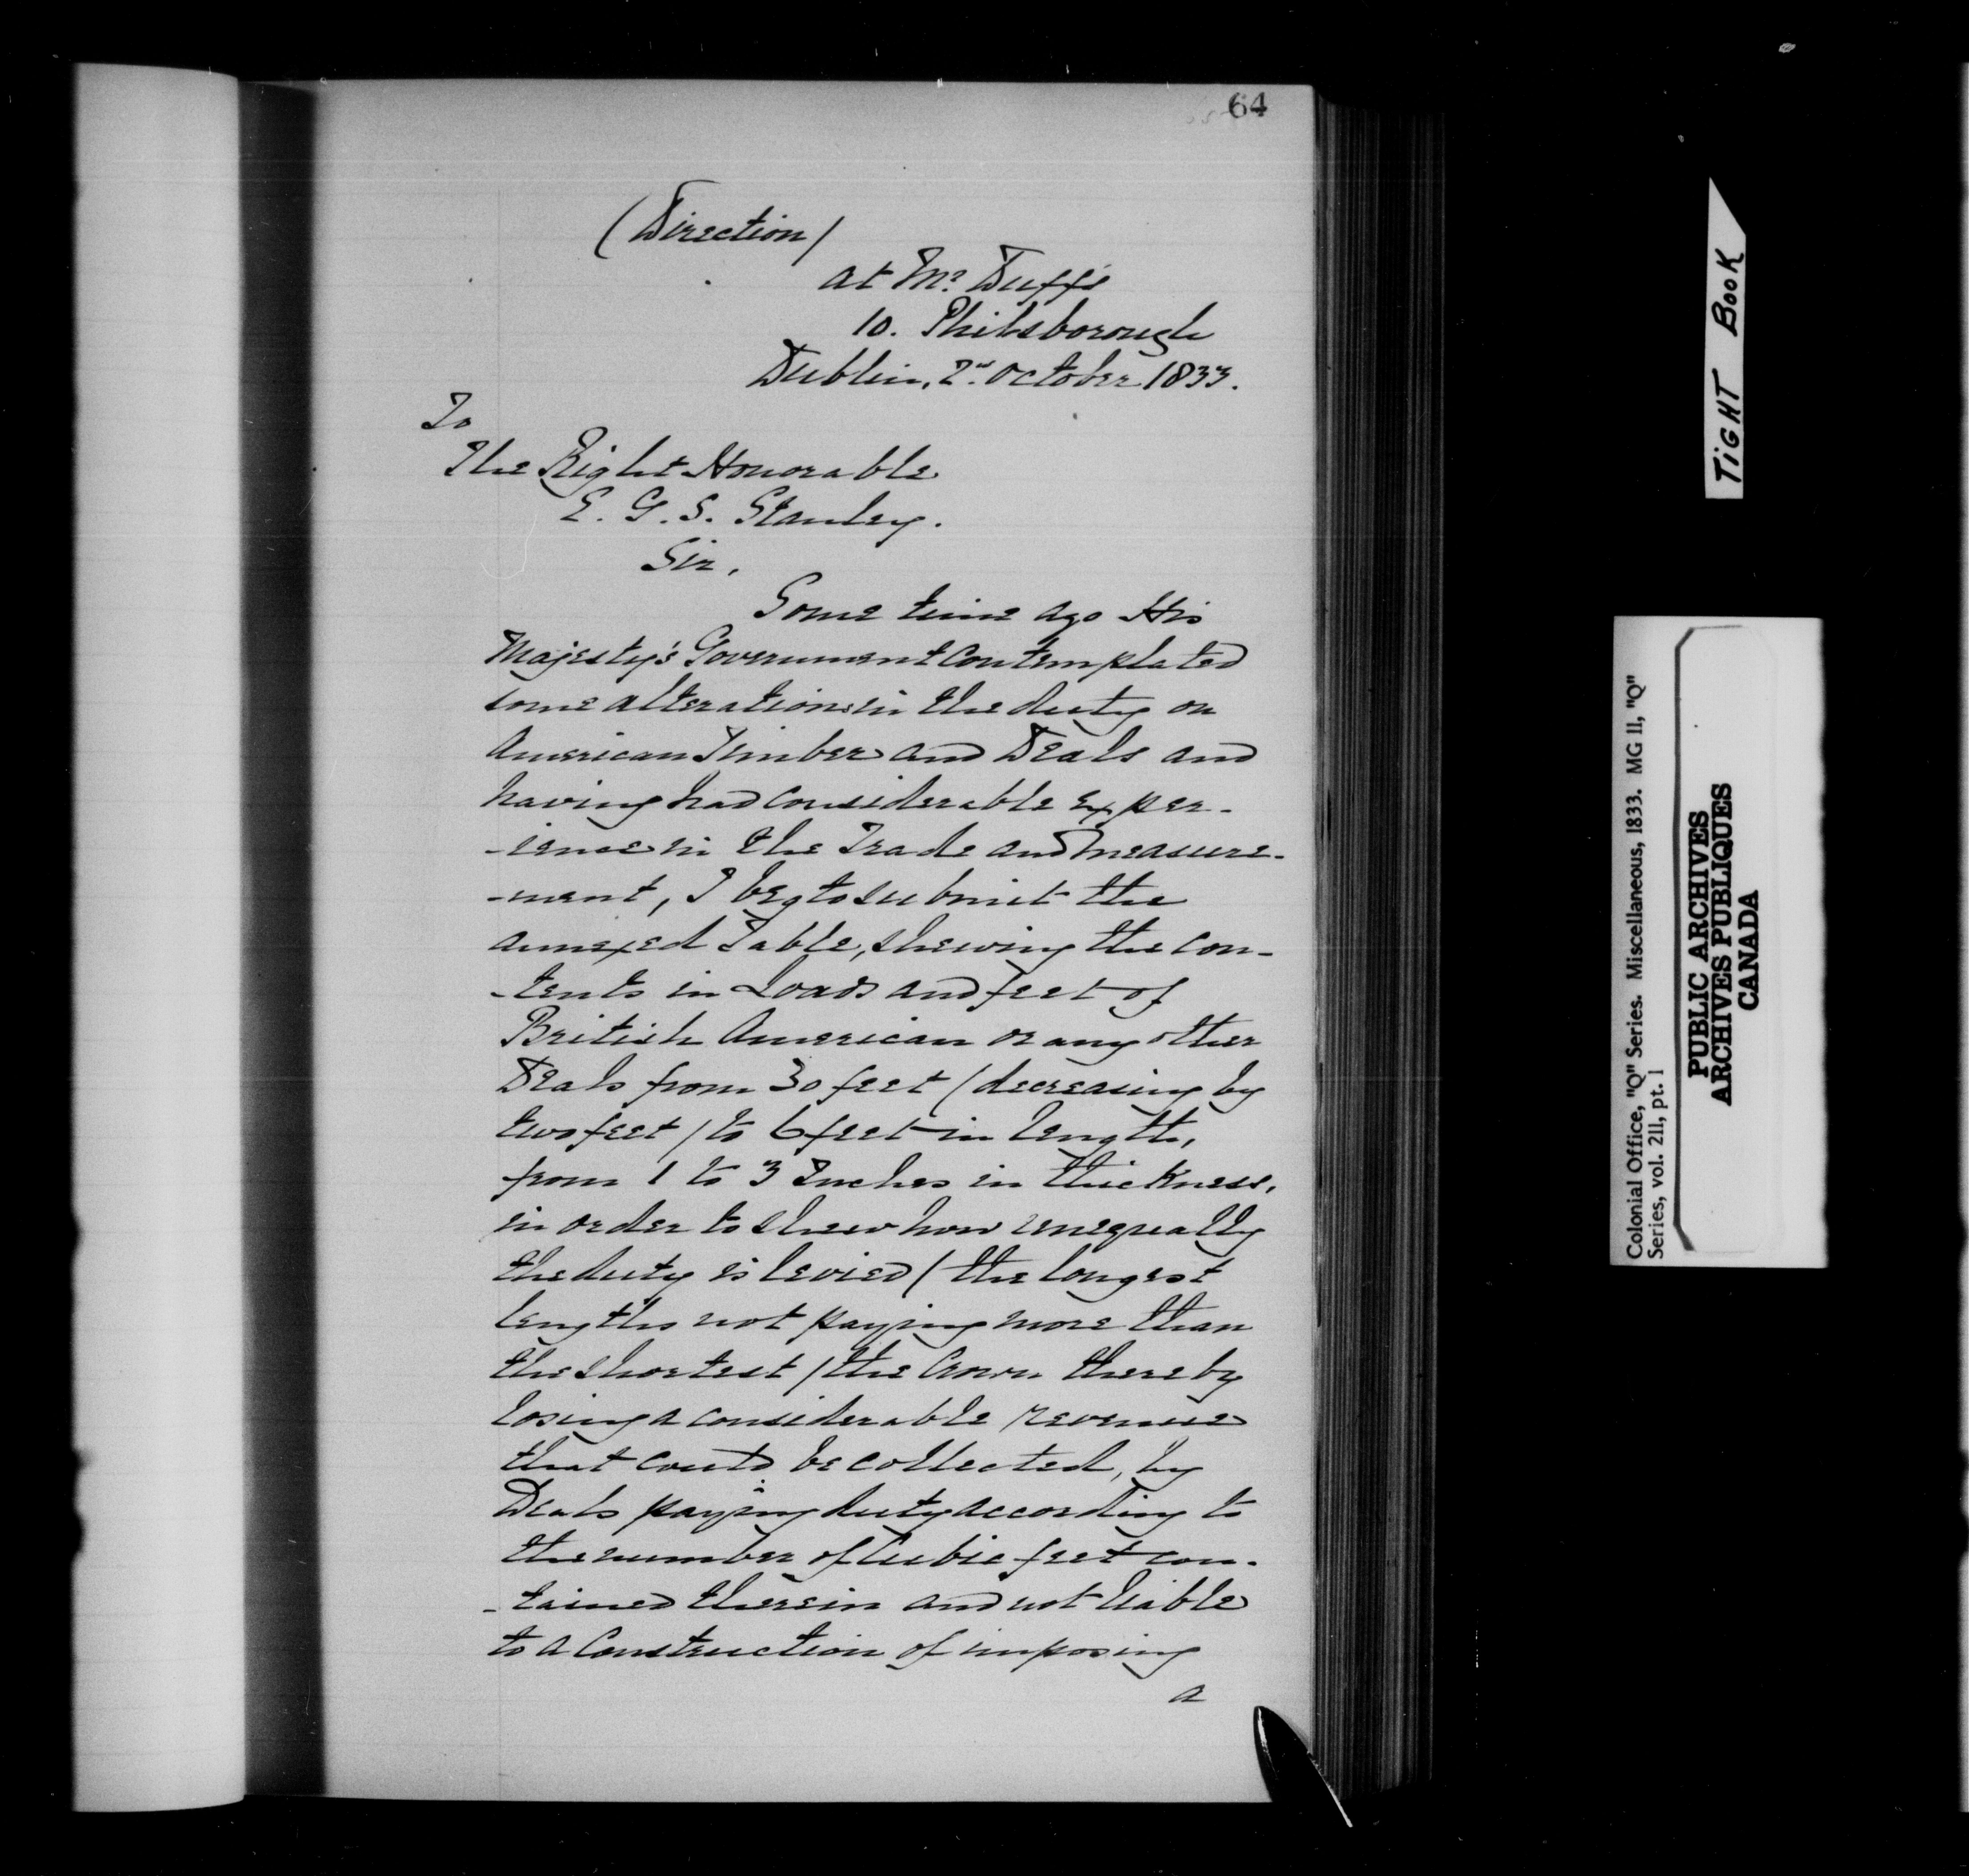 64
(Direction)
at Mr. Duffs
10. Phibsborough
Dublin, 2nd. October 1833.
To
The Right Honorable
E. G. S. Stanley.
Sir,
Some time ago His
Majesty's Government contemplated
some alterations in the duty on
American Timber and Deals and
having had considerable exper-
-ience in the Trade and measure-
-ment, I beg to submit the
annexed Table, shewing the con-
-tents in Loads and feet of
British American or any other
Deals from 30 feet (decreasing by
two feet) to 6 feet in length,
from 1 to 3 Inches in thickness,
in order to shew how unequally
the duty is levied (the longest
lengths not paying more than
the shortest) the Crown thereby
losing a considerable revenue
that could be collected, by
Deals paying duty according to
the number of Cubic feet con-
-tained therein and not liable
to a Construction of imposing
a
TIGHT BOOK
Colonial Office, "Q" Series. Miscellaneous, 1833. MG 11, "Q"
Series, vol. 211, pt. 1
PUBLIC ARCHIVES
ARCHIVES PUBLIQUES
CANADA